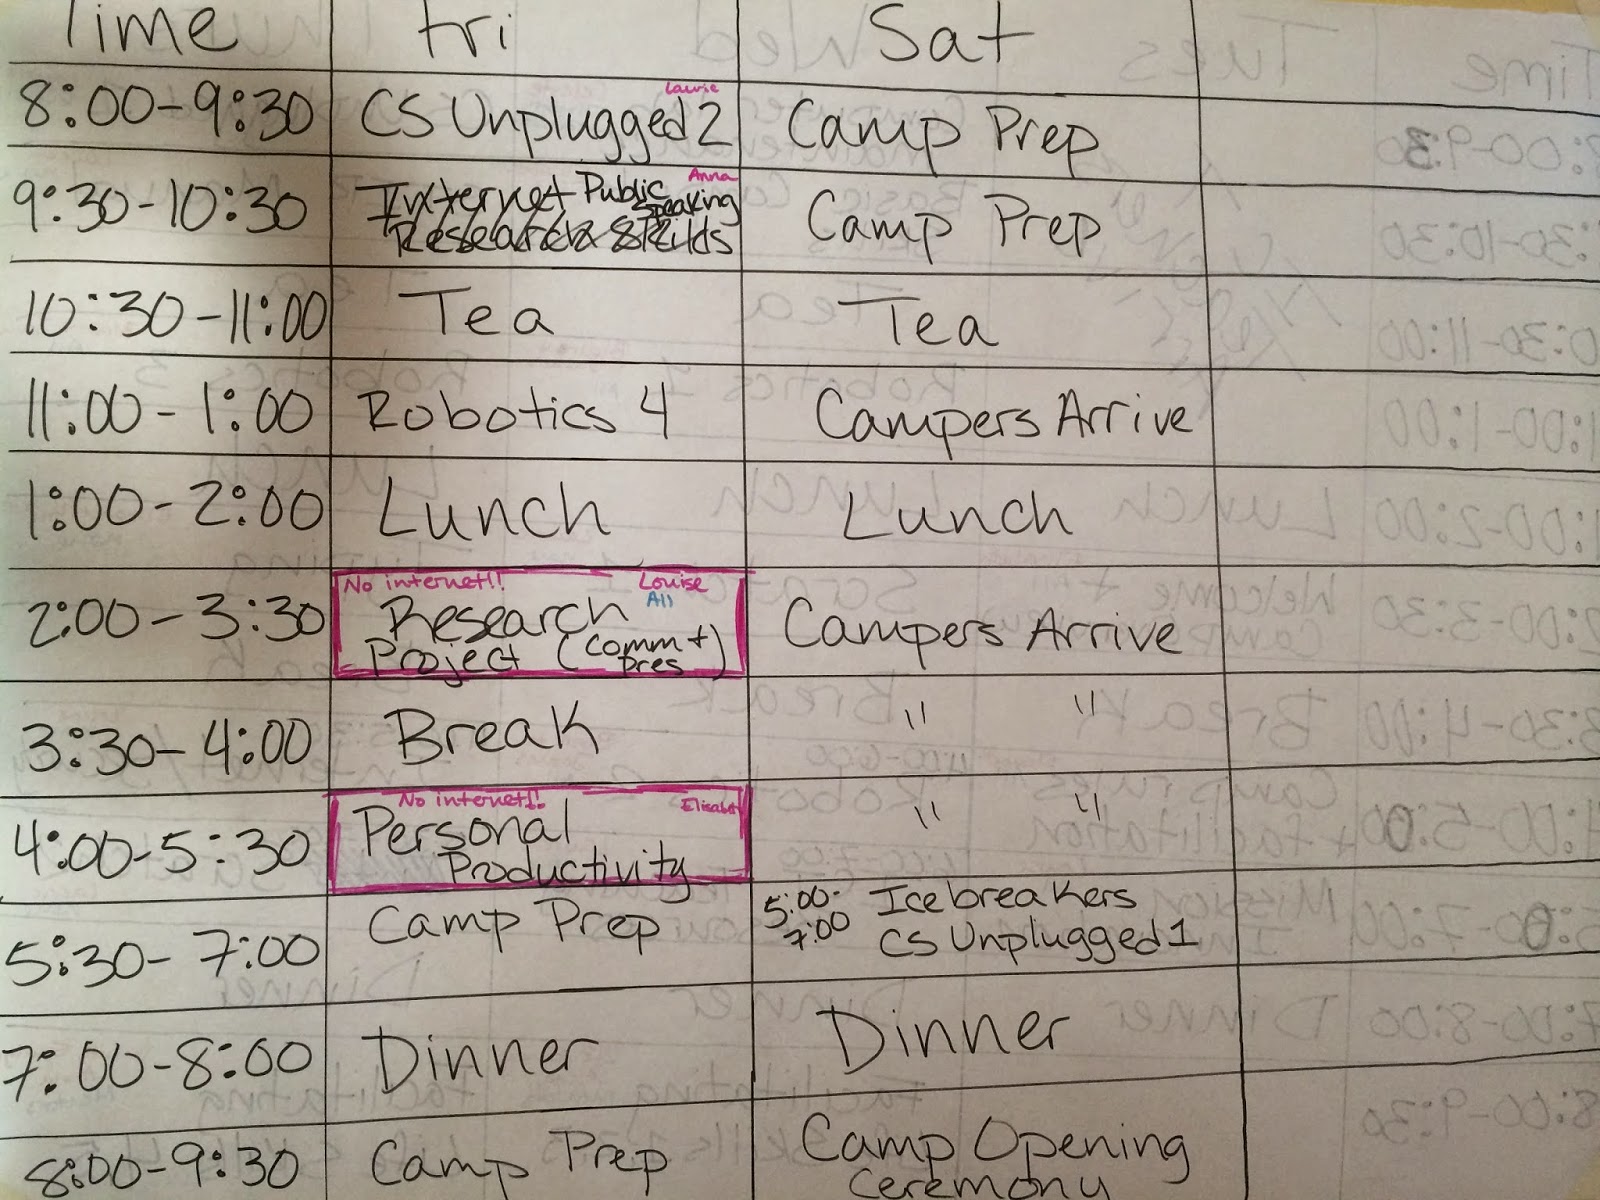 Time Fri Sat
8:00-9:30 CS Unplugged 2 Laurie Camp Prep
9:30-10:30 Internet Public Speaking Anna Camp Prep
Research Skills
10:30-11:00 Tea Tea
11:00-1:00 Robotics 4 Campers Arrive
1:00-2:00 Lunch Lunch
No internet!! Louise
All
2:00-3:30 Research Campers Arrive
Project (comm +
pres)
3:30-4:00 Break " "
No internet!! Elisabeth
4:00-5:30 Personal " "
Productivity
5:30-7:00 Camp Prep 5:00-7:00 Icebreakers
CS Unplugged 1
7:00-8:00 Dinner Dinner
8:00-9:30 Camp Prep Camp Opening
Ceremony